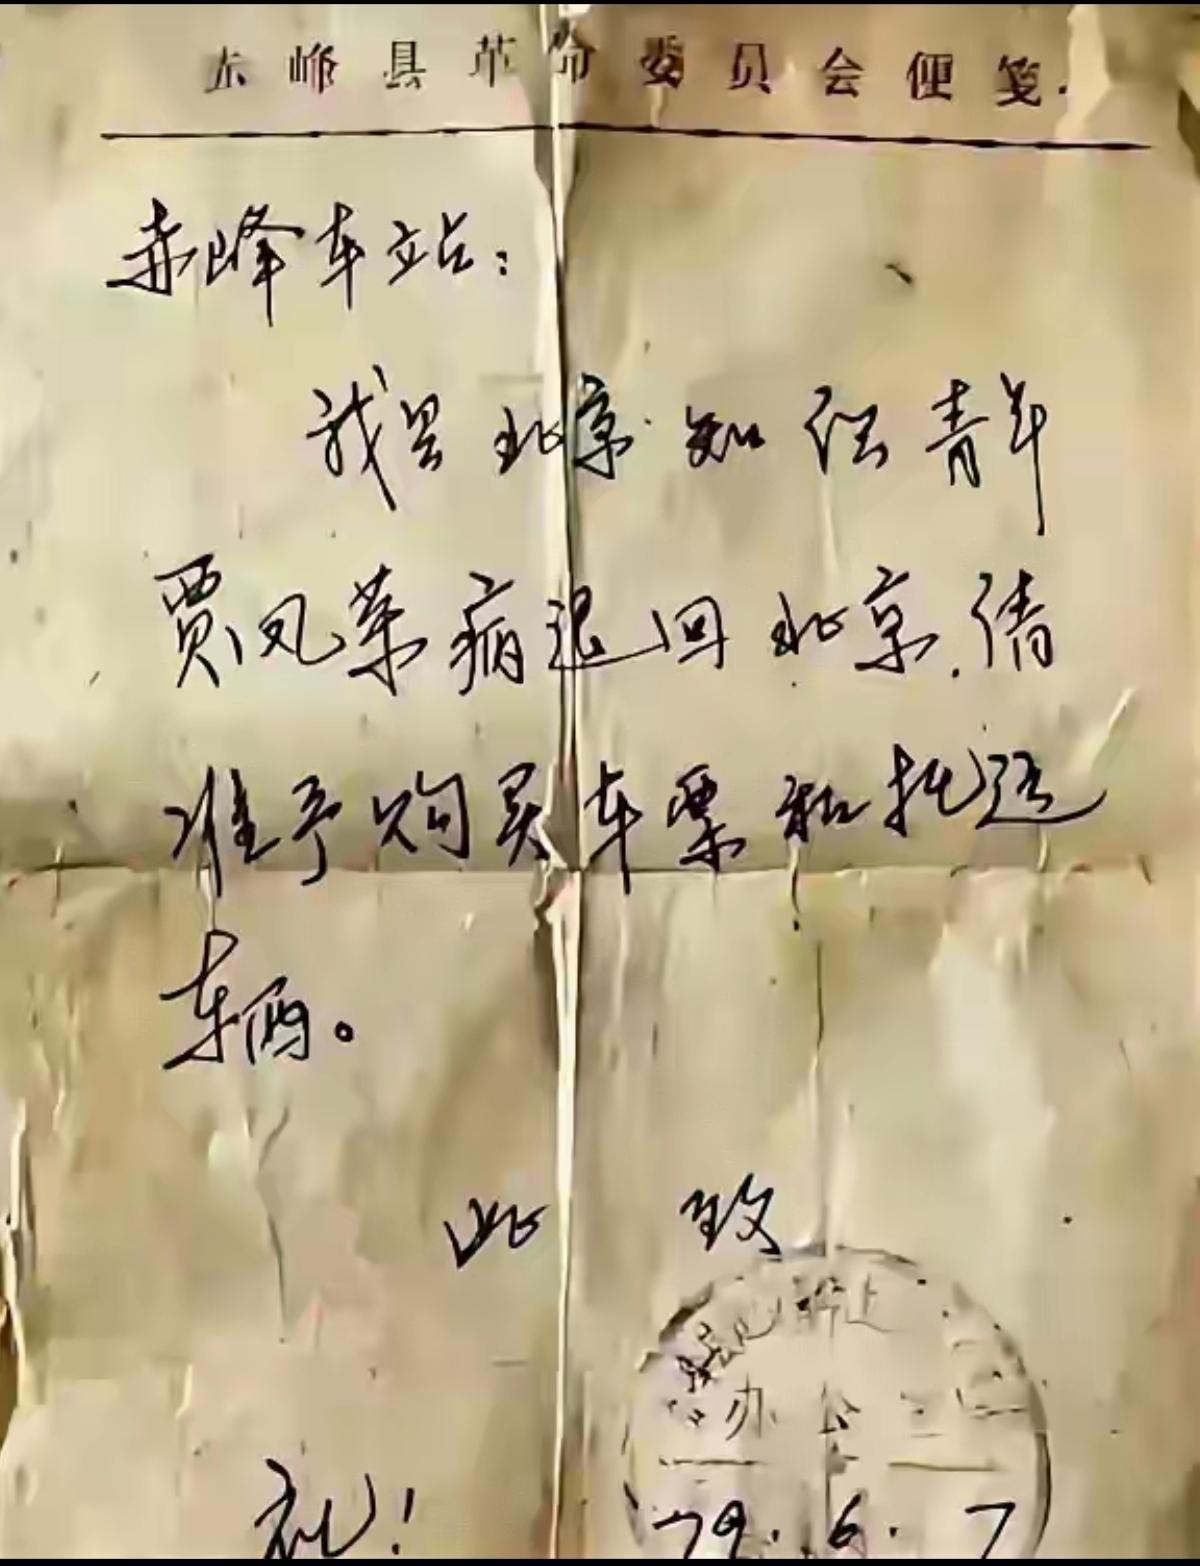 赤峰县革命委员会便笺
赤峰车站：
我县北京知识青年
贾凤荣病退回北京，请
准予购买车票和托运
车辆。
此 致
办公
礼！
79.6.7